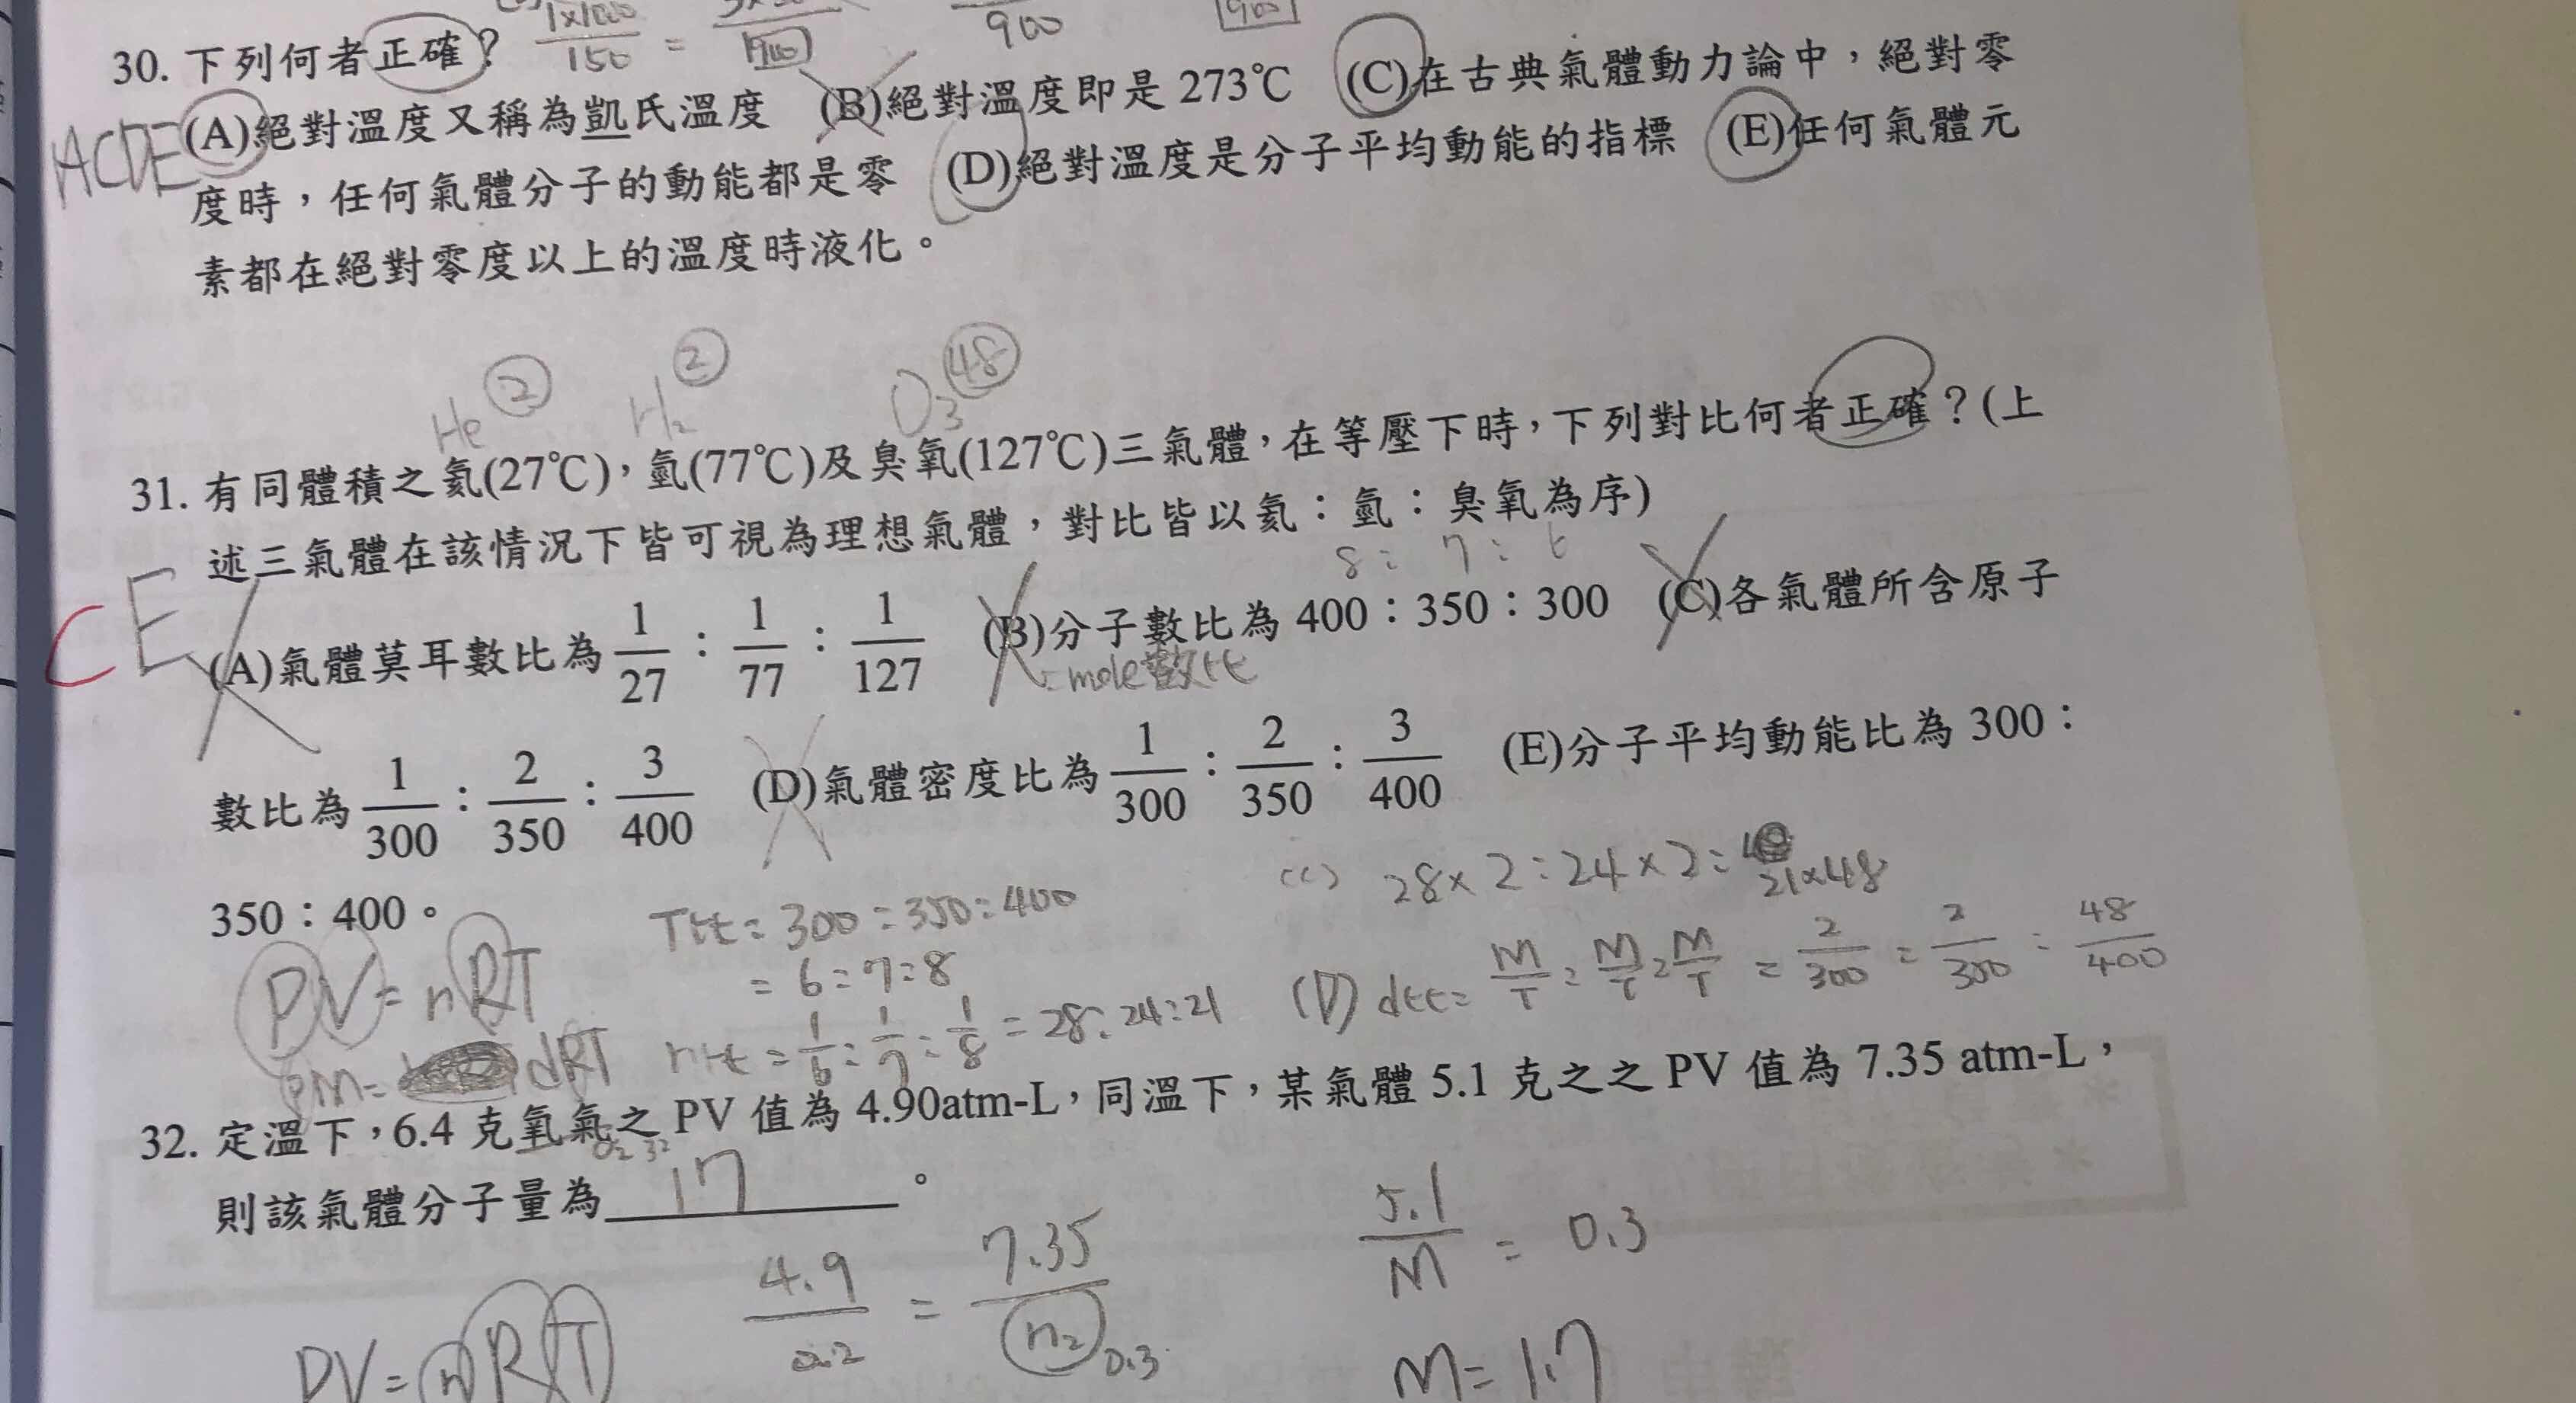 1×1000/150 =
900
30. 下列何者正確？
ACDE
(A)絕對溫度又稱為凱氏溫度 (B)絕對溫度即是 273℃ (C)在古典氣體動力論中，絕對零
度時，任何氣體分子的動能都是零 (D)絕對溫度是分子平均動能的指標 (E)任何氣體元
素都在絕對零度以上的溫度時液化。
He ② H₂ ② O₃ ㊽
31. 有同體積之氦(27℃)，氫(77℃)及臭氧(127℃)三氣體，在等壓下時，下列對比何者正確？(上
述三氣體在該情況下皆可視為理想氣體，對比皆以氦：氫：臭氧為序)
8 : 7 : 6
CE
(A)氣體莫耳數比為 1/27 : 1/77 : 1/127 (B)分子數比為 400：350：300 (C)各氣體所含原子
mole數比
數比為 1/300 : 2/350 : 3/400 (D)氣體密度比為 1/300 : 2/350 : 3/400 (E)分子平均動能比為 300：
350：400。
(C) 28×2:24×2: 21×48
T比=300:350:400
=6:7:8
PV=nRT
(D) d比= M/T : M/T : M/T = 2/300 : 2/350 : 48/400
PM= dRT
n比=1/6:1/7:1/8=28:24:21
32. 定溫下，6.4 克氧氣之 PV 值為 4.90atm-L，同溫下，某氣體 5.1 克之之 PV 值為 7.35 atm-L，
O₂ 32
則該氣體分子量為 17 。
5.1/M = 0.3
4.9/0.2 = 7.35/n₂ 0.3
PV=nRT
M=17